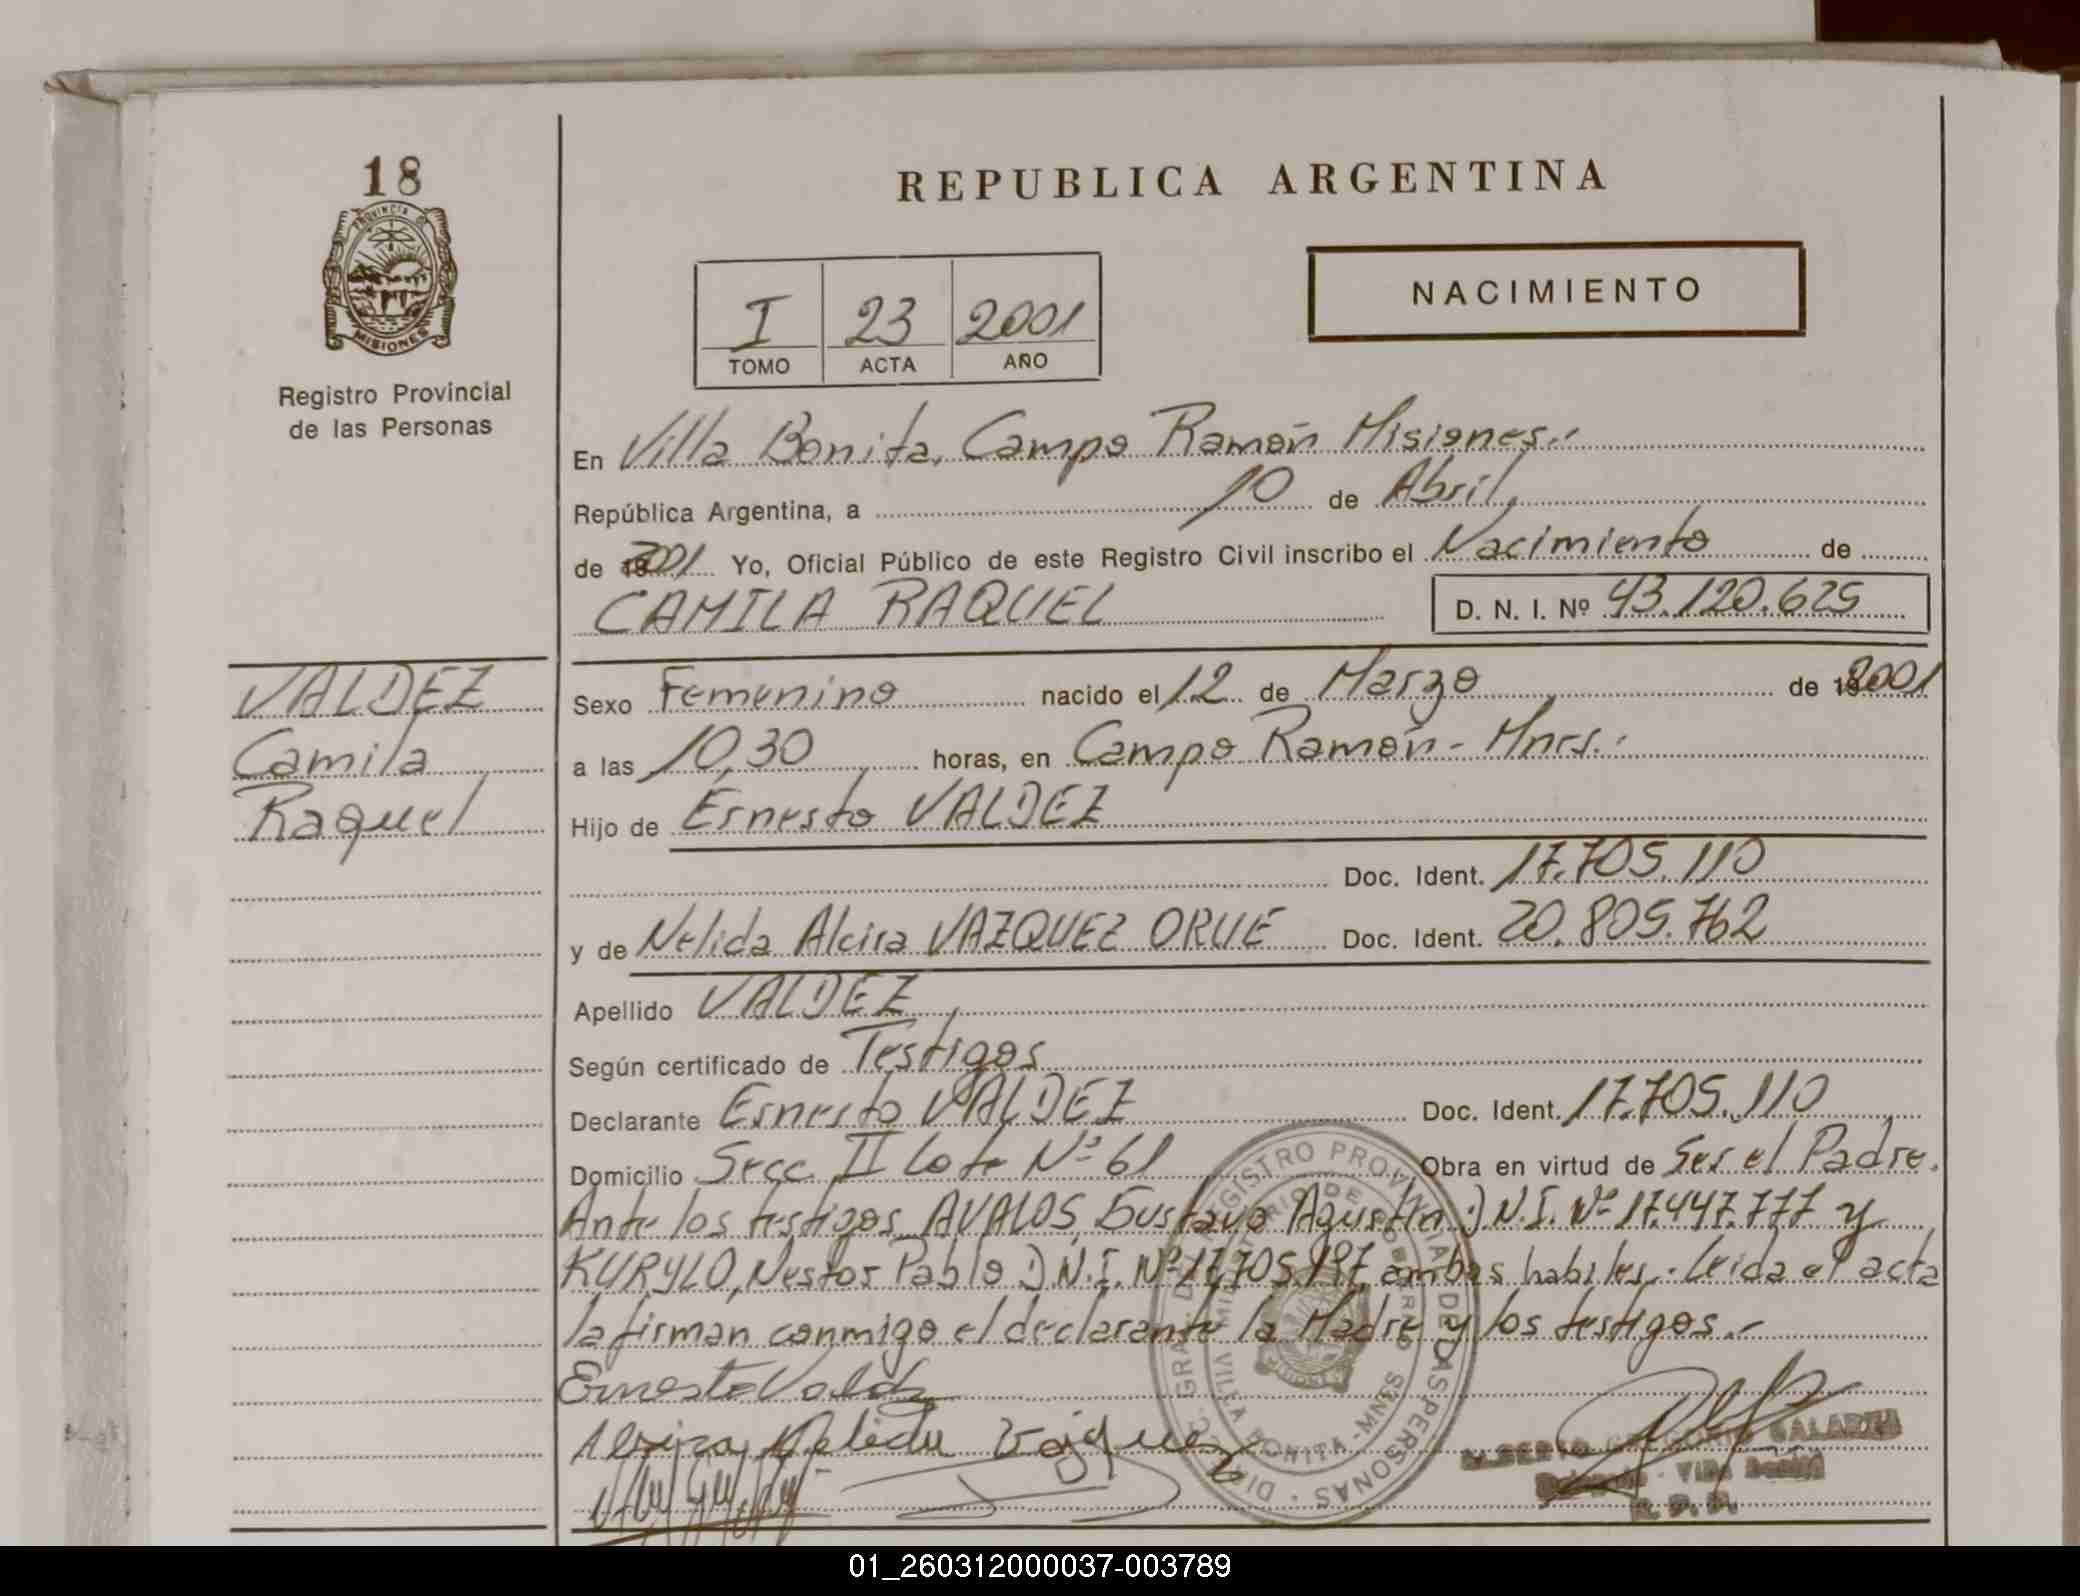 18
PROVINCIA DE
MISIONES
Registro Provincial
de las Personas
REPUBLICA ARGENTINA
I 23 2001
TOMO ACTA AÑO
NACIMIENTO
En Villa Bonita, Campo Ramón Misiones.-
República Argentina, a 10 de Abril,
de 2001 Yo, Oficial Público de este Registro Civil inscribo el Nacimiento de
CAMILA RAQUEL D. N. I. Nº 43.120.625
VALDEZ
Camila
Raquel
Sexo Femenino nacido el 12 de Marzo de 2001
a las 10,30 horas, en Campo Ramón - Mnes.-
Hijo de Ernesto VALDEZ
Doc. Ident. 17.705.110
y de Nelida Alcira VAZQUEZ ORUE Doc. Ident. 20.805.762
Apellido VALDEZ
Según certificado de Testigos
Declarante Ernesto VALDEZ Doc. Ident. 17.705.110
Domicilio Secc. II Lote Nº 61 Obra en virtud de Ser el Padre.
Ante los testigos AVALOS, Gustavo Agustin D.N.I. Nº 17.447.777 y
KURYLO, Nestor Pablo D.N.I. Nº 17.705.197 ambos habiles.- Leida el acta
la firman conmigo el declarante la Madre y los testigos.-
Ernesto Valdez
Alcira Nelida Vazquez
REGISTRO PROVINCIAL DE LAS PERSONAS
VILLA BONITA - MNES
01_260312000037-003789